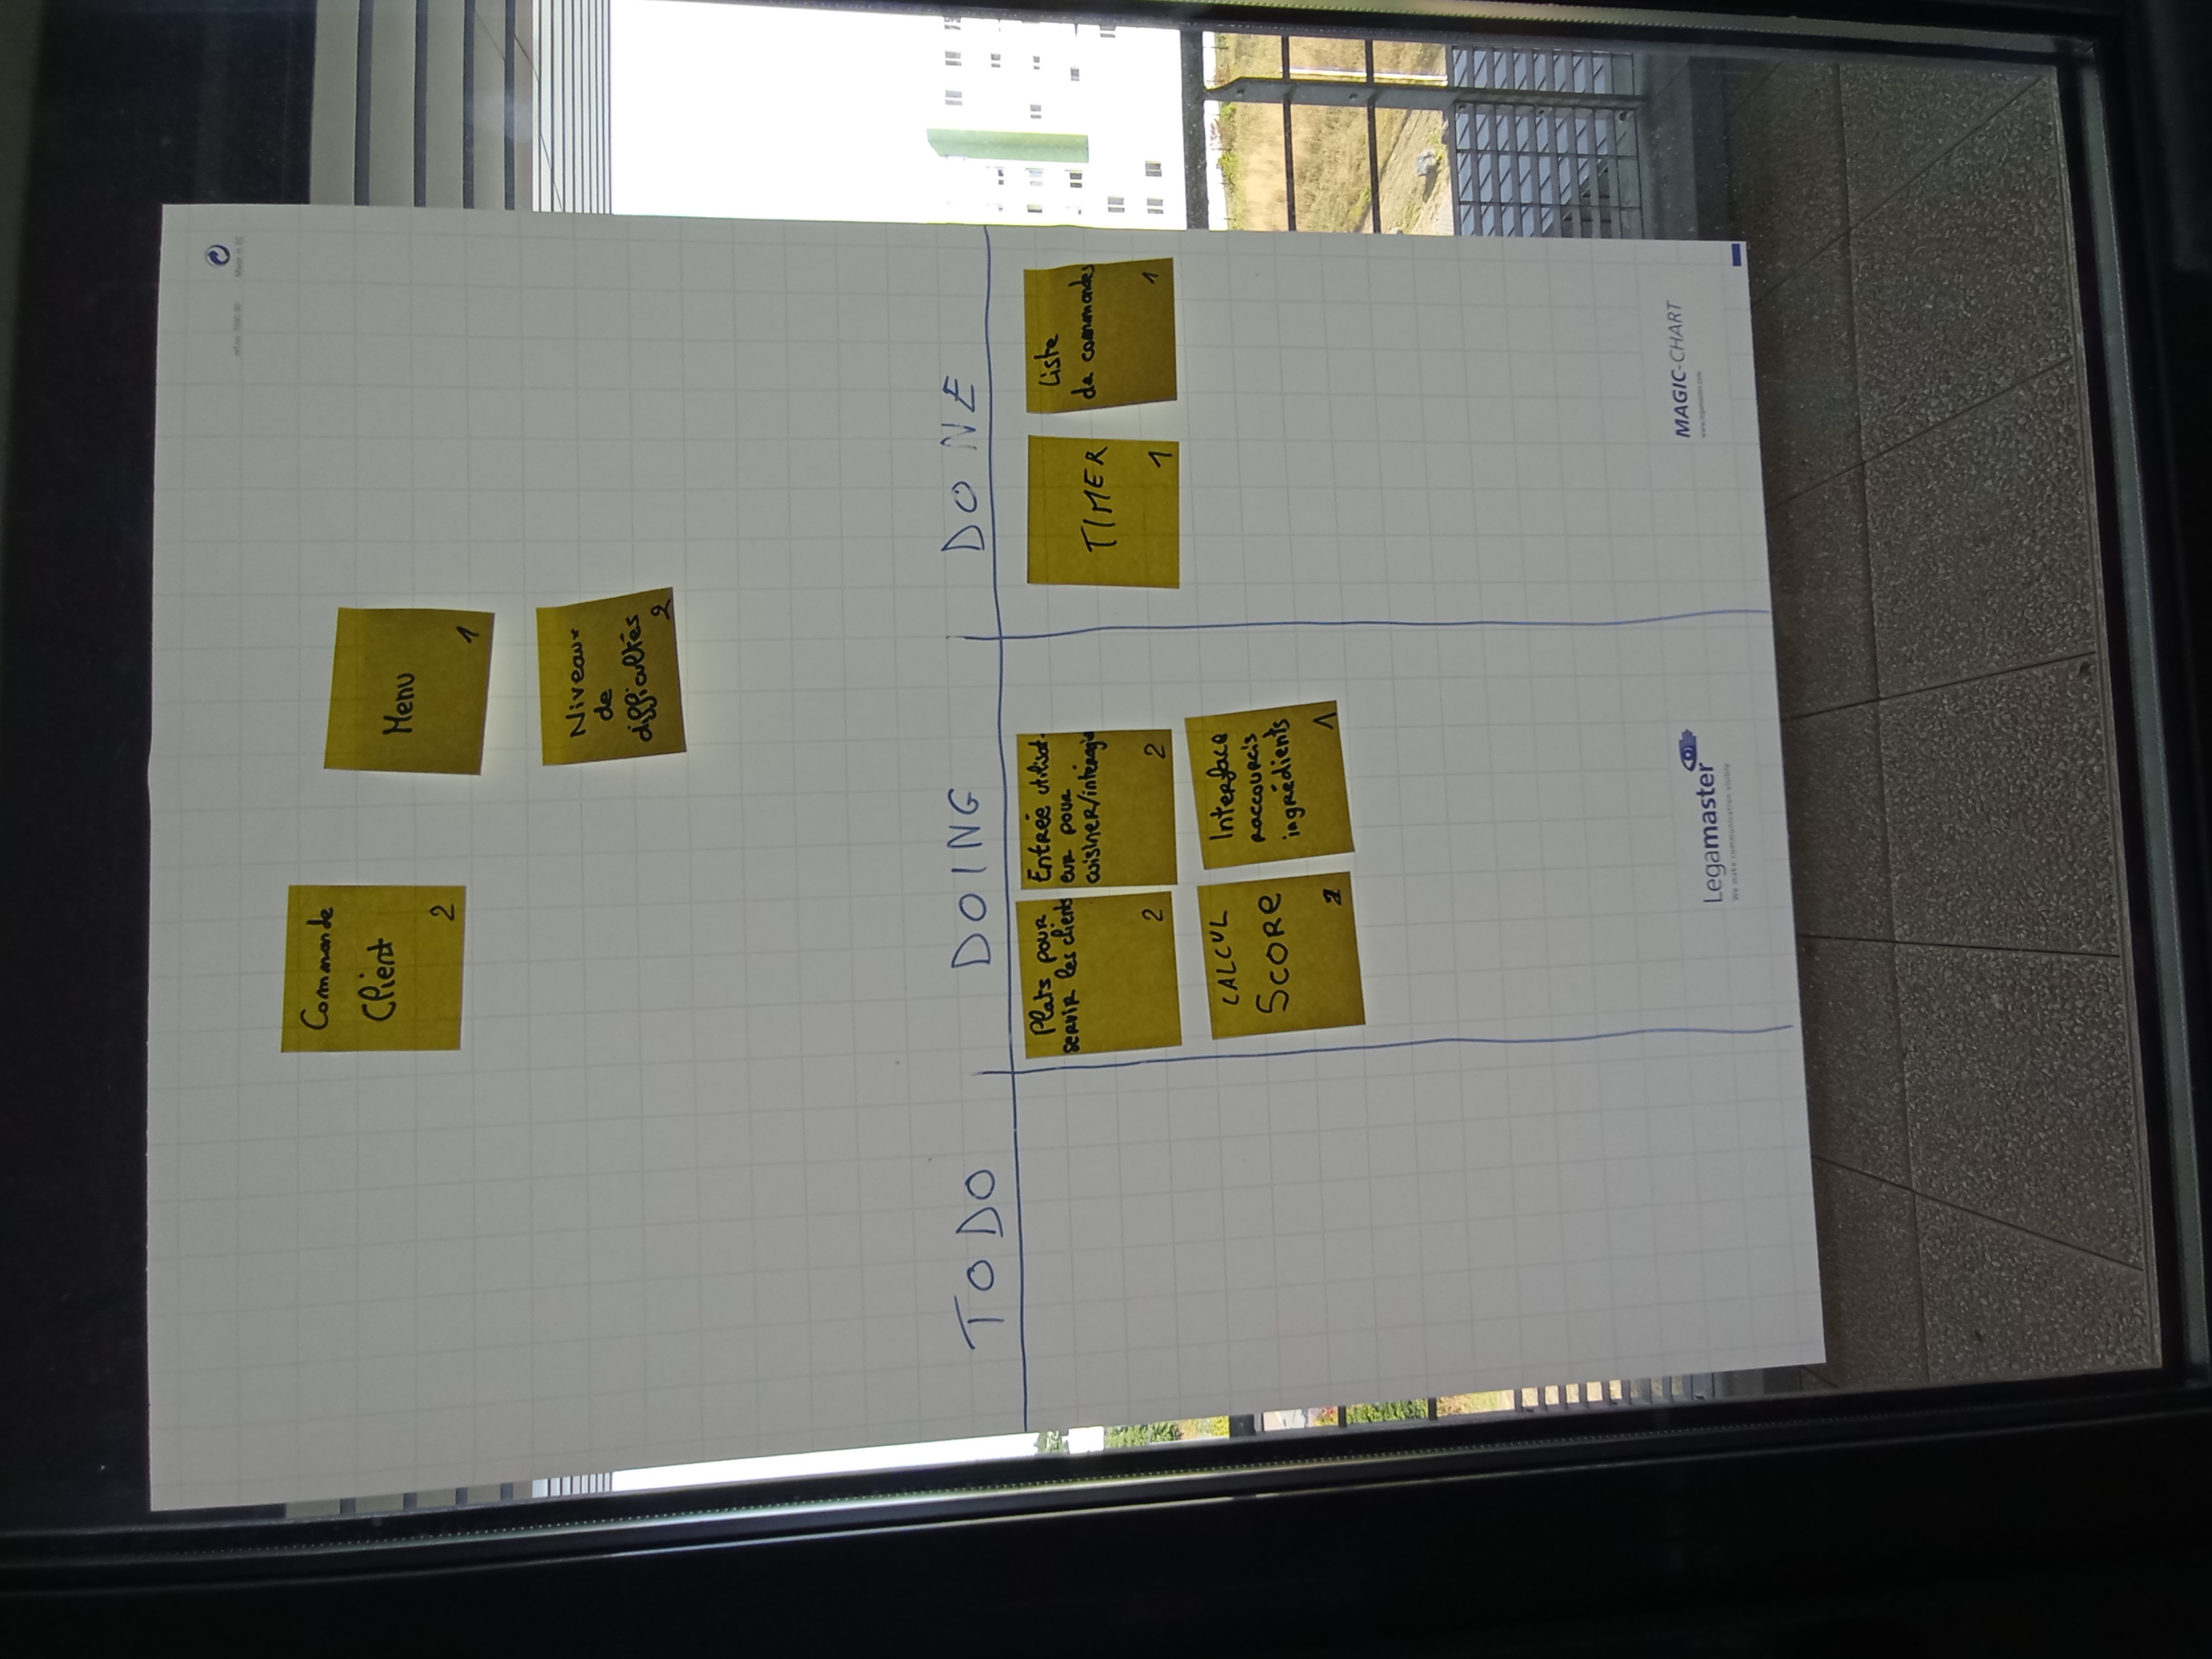 Made in EC
Commande
Client
2
Menu
1
Niveaux
de
difficultés
2
TODO
DOING
DONE
Plats pour
servir les clients
2
Entrée utilisat
eur pour
cuisiner/intéragir
2
CALCUL
SCORE
Interface
raccourcis
ingrédients
1
TIMER
1
Liste
de commandes
1
Legamaster
We make communication visible
MAGIC-CHART
www.legamaster.com